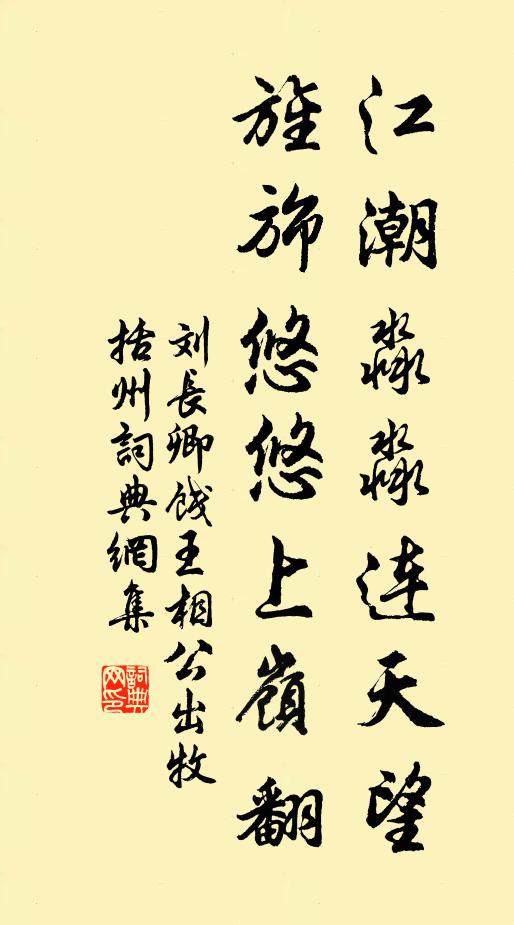 江潮淼淼连天望
旌旆悠悠上嶺翻
刘長卿饯王相公出牧
括州詞典網集
詞典网印